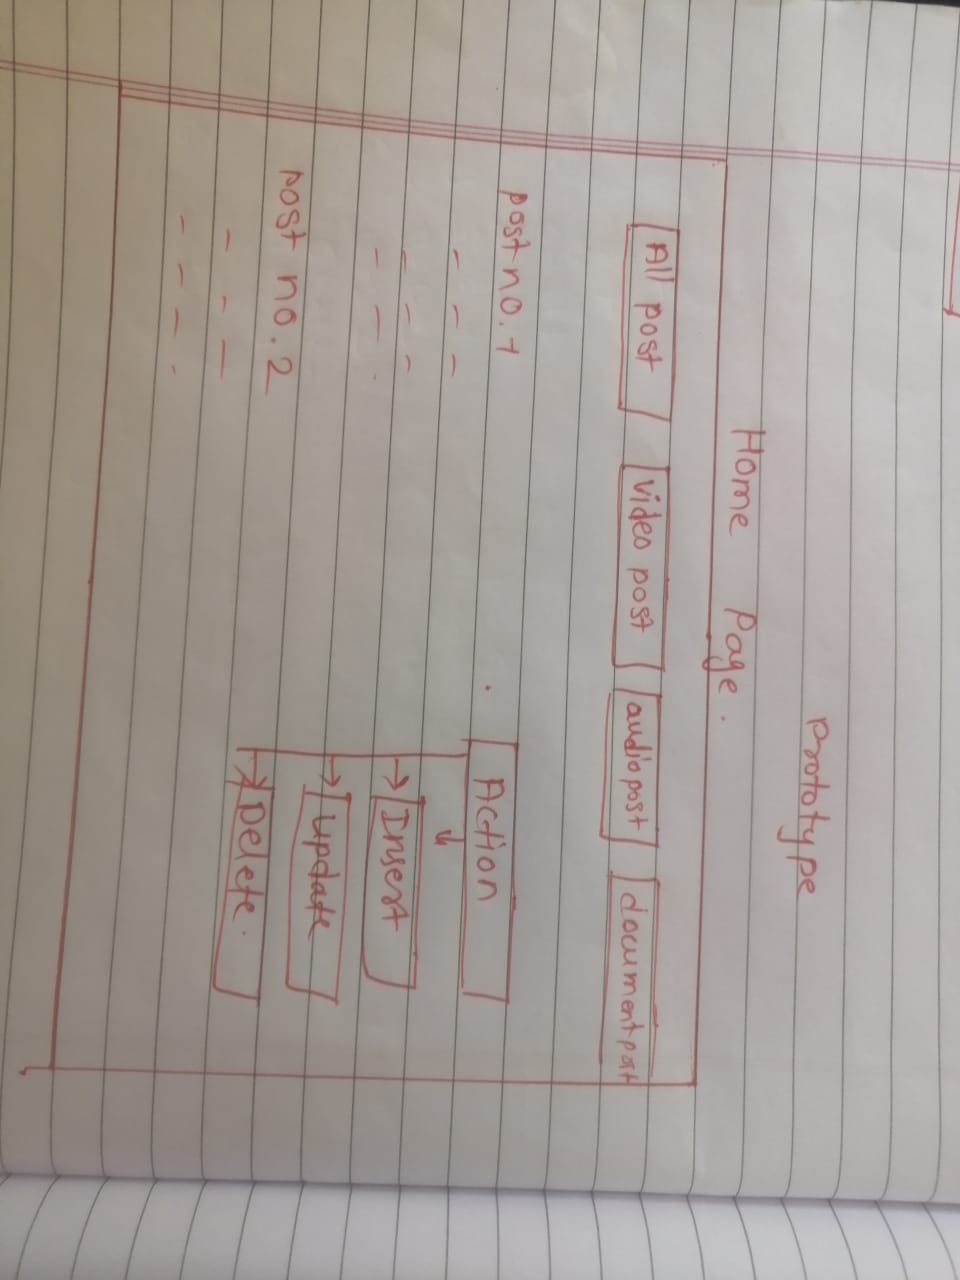 Prototype
Home Page.
All post
video post
audio post
document post
post no. 1
Action
Insert
update
Delete.
post no. 2